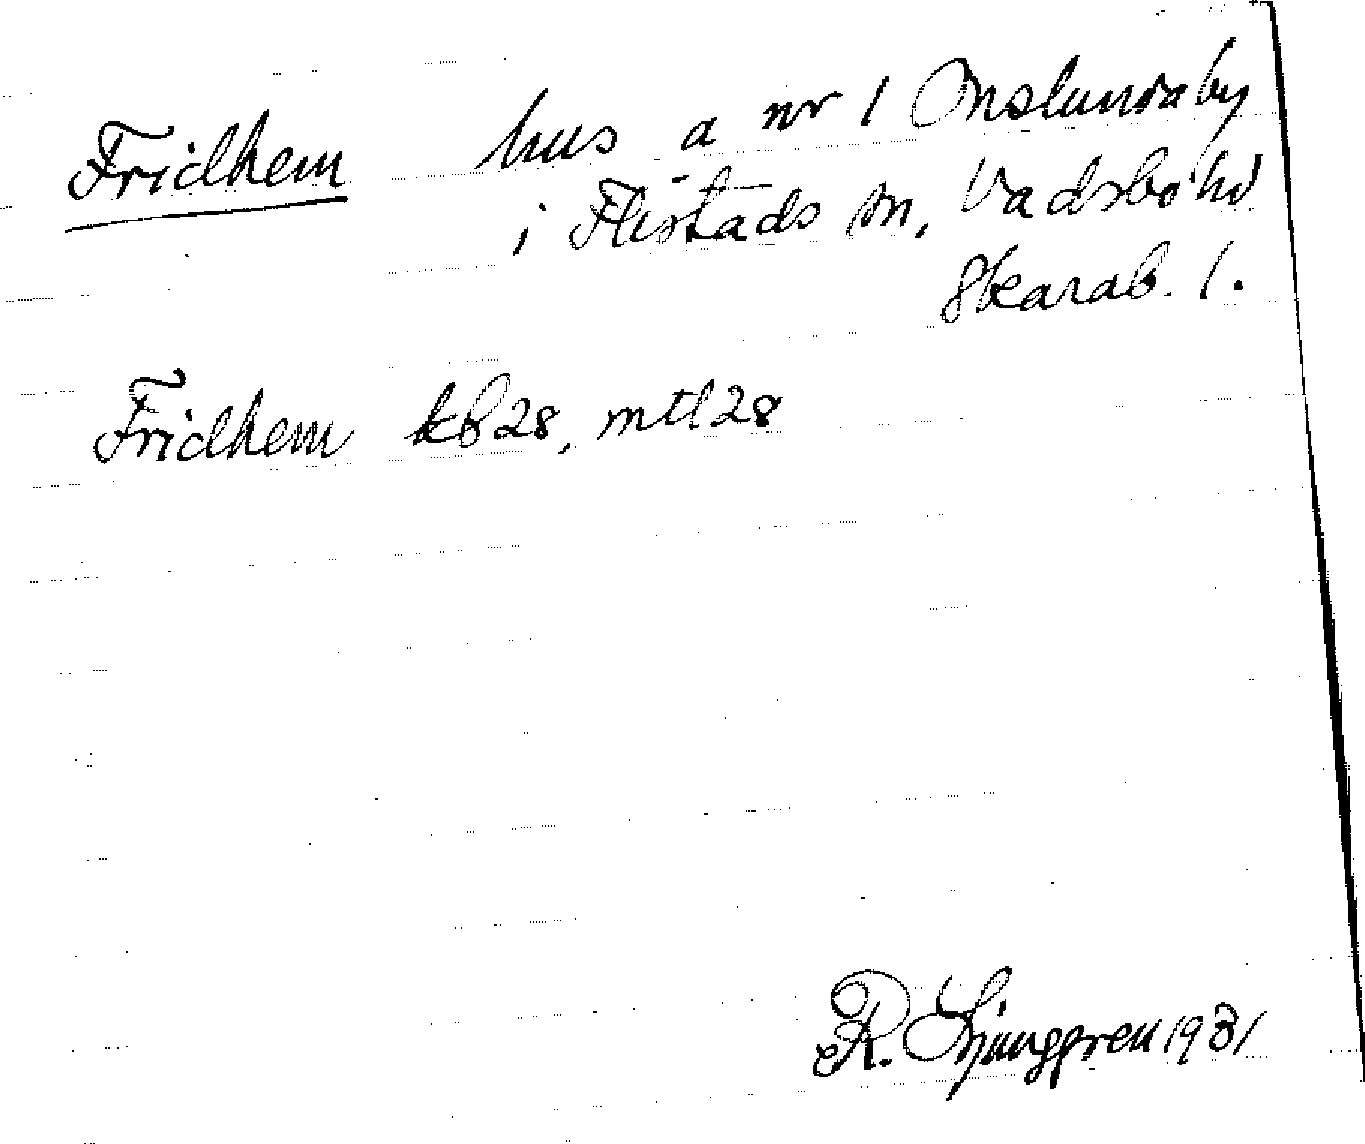 Fridhem hus å nr 1 Onslunda by
i Flistads sn, Vadsbo hd
Skarab. l.
Fridhem kb 28, mtl 28
R. Ljunggren 1931